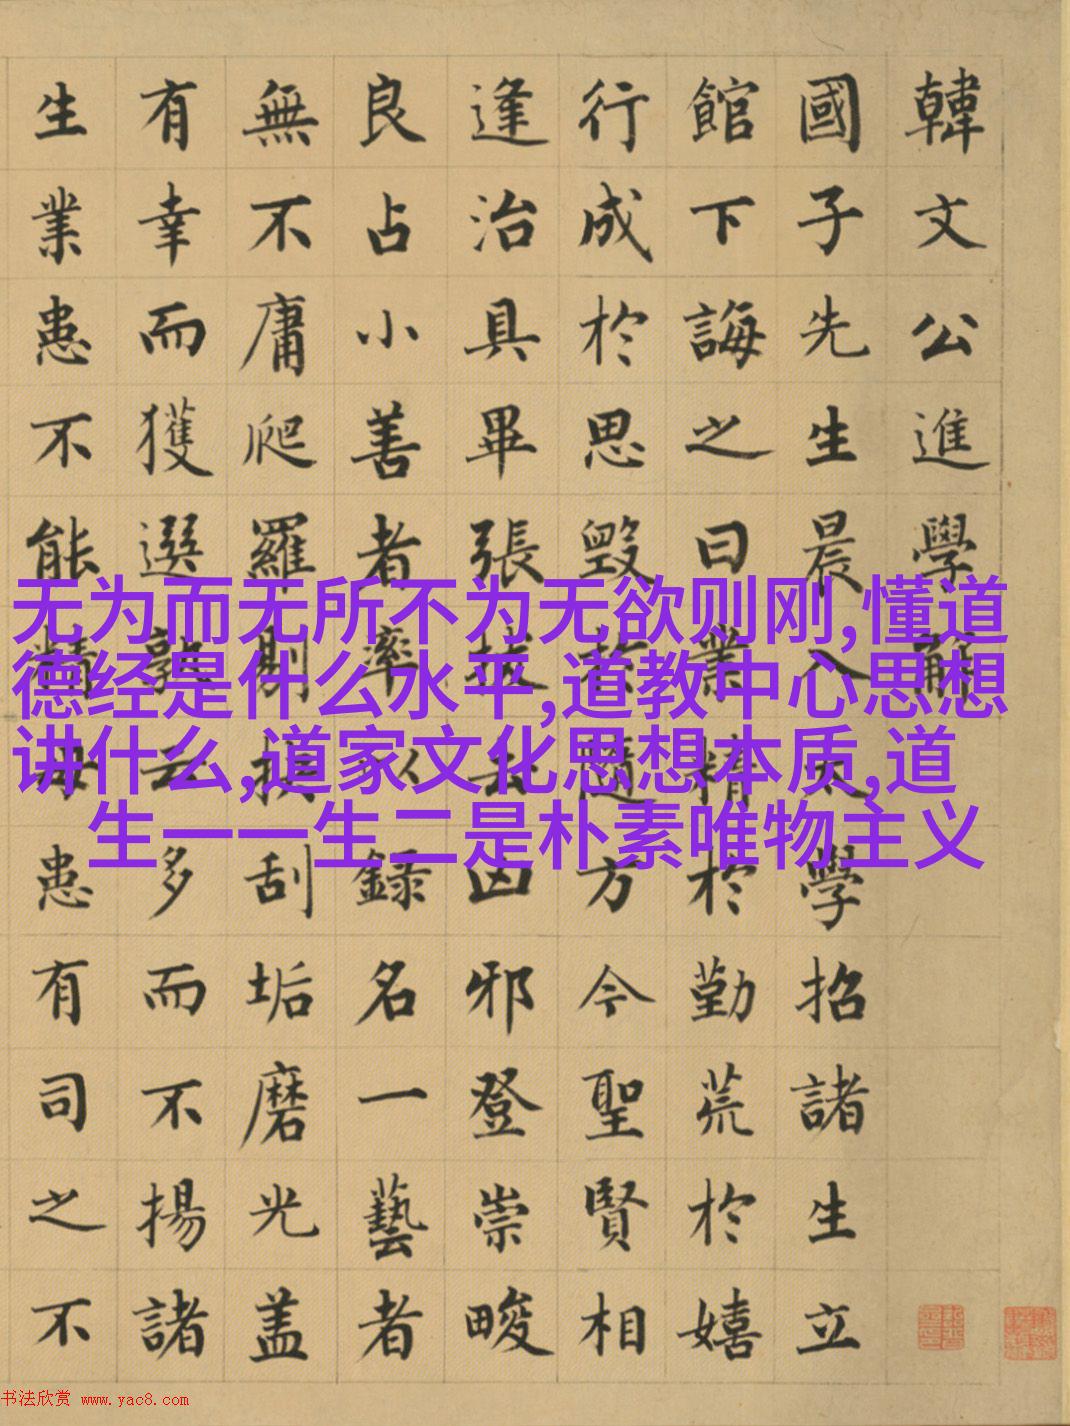 韓文公進學解
國子先生晨入太學招諸生立
館下誨之曰業精於勤荒於嬉
行成於思毀於隨方今聖賢相
逢治具畢張拔去凶邪登崇畯
良占小善者率以錄名一藝者
無不庸爬羅剔抉刮垢磨光盖
有幸而獲選孰云多而不揚諸
生業患不能精毋患有司之不
无为而无所不为无欲则刚,懂道
德经是什么水平,道教中心思想
讲什么,道家文化思想本质,道
生一一生二是朴素唯物主义
书法欣赏 www.yac8.com